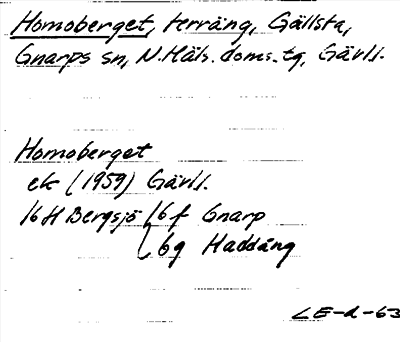 Homoberget, terräng, Gällsta,
Gnarps sn, N.Häls. doms.tg, Gävl.l.
Homoberget
ek (1959) Gävl.l.
16 H Bergsjö 6f Gnarp
6g Haddäng
LE-d-63